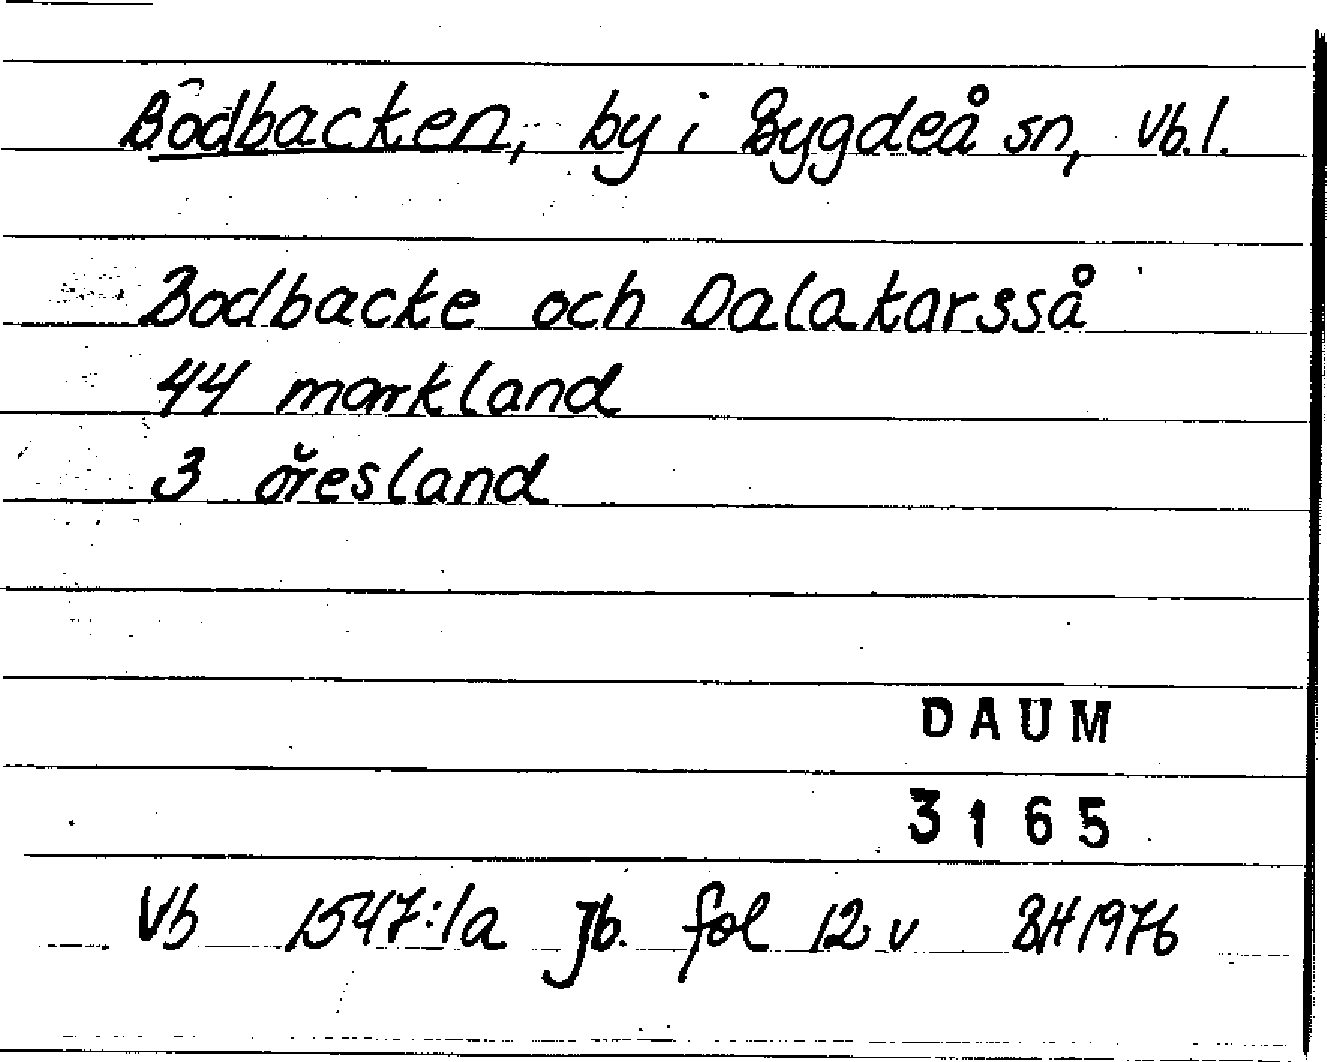 Bodbacken, by i Bygdeå sn, Vb.l.
Bodbacke och Dalakarsså
44 markland
3 öresland
DAUM
3165
Vb 1547:1a Jb. fol 12 v BH 1976